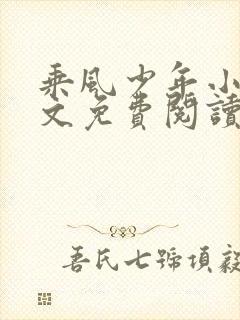 乘風少年小
文免費閱讀
吾氏七號項毅